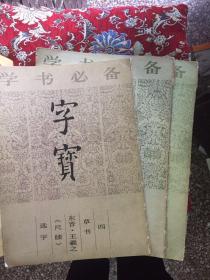 学书必备
字寳
四
草书
东晋·王羲之
《尺牍》
选字
学书必备
备